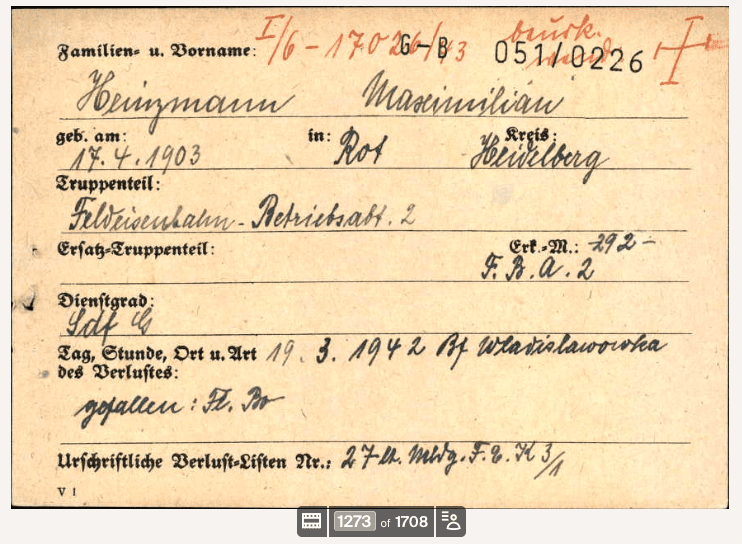 Familien- u. Vorname: I/6 - 17026/43 G-B 051/0226
Heinzmann Maximilian
geb. am: in: Kreis:
17.4.1903 Rot Heidelberg
Truppenteil:
Feldeisenbahn-Betriebsabt. 2
Ersatz-Truppenteil: Erk.-M.: -292-
F. B. A. 2
Dienstgrad:
Sdf G
Tag, Stunde, Ort u. Art 19. 3. 1942 Bf Wladislawowka
des Verlustes:
gefallen: Fl. Bo
Urschriftliche Verlust-Listen Nr.: 27 lt. Mldg. F. E. K 3/1
V 1
1273 of 1708